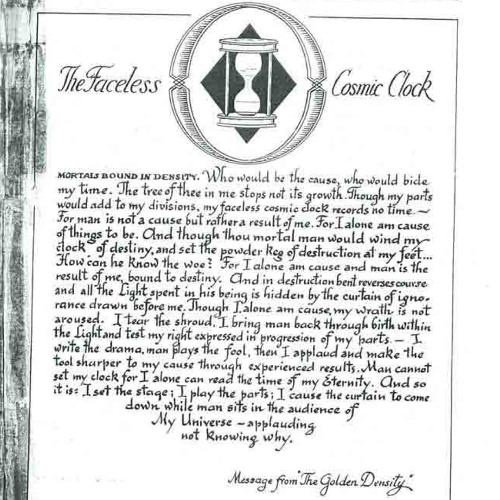 The Faceless Cosmic Clock
MORTALS BOUND IN DENSITY. Who would be the cause, who would bide
my time. The tree of thee in me stops not its growth. Though my parts
would add to my divisions, my faceless cosmic clock records no time. –
For man is not a cause but rather a result of me. For I alone am cause
of things to be. And though thou mortal man would wind my
clock of destiny, and set the powder keg of destruction at my feet...
How can he know the woe? For I alone am cause and man is the
result of me, bound to destiny. And in destruction bent reverses course
and all the Light spent in his being is hidden by the curtain of igno-
rance drawn before me. Though I alone am cause, my wrath is not
aroused. I tear the shroud, I bring man back through birth within
the Light and test my right expressed in progression of my parts – I
write the drama, man plays the fool, then I applaud and make the
tool sharper to my cause through experienced results. Man cannot
set my clock for I alone can read the time of my Eternity. And so
it is: I set the stage; I play the parts; I cause the curtain to come
down while man sits in the audience of
My Universe – applauding
not knowing why.
Message from "The Golden Density"